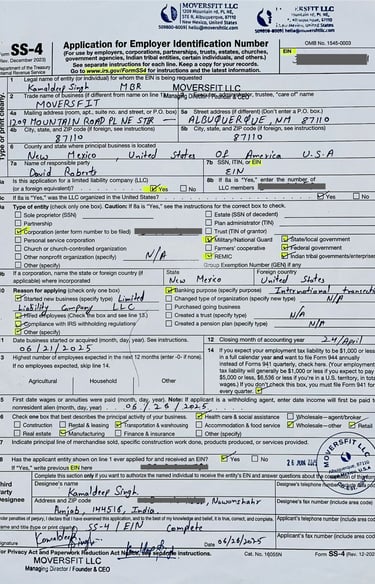 MOVERSFIT LLC
1209 Mountain rd. PL. NE,
STE R, Albuquerque, 87110
New Mexico, U.S.A
help@moversfit.us
MOVERSFIT LLC
help@moversfit.us
Form SS-4
(Rev. December 2023)
Department of the Treasury
Internal Revenue Service
Application for Employer Identification Number
(For use by employers, corporations, partnerships, trusts, estates, churches,
government agencies, Indian tribal entities, certain individuals, and others.)
See separate instructions for each line. Keep a copy for your records.
Go to www.irs.gov/FormSS4 for instructions and the latest information.
OMB No. 1545-0003
EIN
1 Legal name of entity (or individual) for whom the EIN is being requested
Kamaldeep Singh MBR
MOVERSFIT LLC
2 Trade name of business (if different from name on line 1)
Managing Director / Founder & CEO
trustee, "care of" name
MOVERSFIT
4a Mailing address (room, apt., suite no. and street, or P.O. box)
1209 MOUNTAIN ROAD PL NE STR
5a Street address (if different) (Don't enter a P.O. box.)
ALBUQUERQUE, NM 87110
4b City, state, and ZIP code (if foreign, see instructions)
87110
5b City, state, and ZIP code (if foreign, see instructions)
87110
6 County and state where principal business is located
New Mexico, United States OF America U.S.A
7a Name of responsible party
David Roberts
7b SSN, ITIN, or EIN
EIN
8a Is this application for a limited liability company (LLC)
(or a foreign equivalent)? Yes No
8b If 8a is "Yes," enter the number of
LLC members
8c If 8a is "Yes," was the LLC organized in the United States? Yes No
9a Type of entity (check only one box). Caution: If 8a is "Yes," see the instructions for the correct box to check.
Sole proprietor (SSN)
Partnership
Corporation (enter form number to be filed)
Personal service corporation
Church or church-controlled organization
Other nonprofit organization (specify) N/A
Other (specify)
Estate (SSN of decedent)
Plan administrator (TIN)
Trust (TIN of grantor)
Military/National Guard State/local government
Farmers' cooperative Federal government
REMIC Indian tribal governments/enterprises
Group Exemption Number (GEN) if any
9b If a corporation, name the state or foreign country (if
applicable) where incorporated
State
New Mexico
Foreign country
United States
10 Reason for applying (check only one box)
Started new business (specify type) Limited
Liability Company LLC
Hired employees (Check the box and see line 13.)
Compliance with IRS withholding regulations
Other (specify)
Banking purpose (specify purpose) International
Changed type of organization (specify new type) N/A
Purchased going business
Created a trust (specify type) N/A
Created a pension plan (specify type) N/A
11 Date business started or acquired (month, day, year). See instructions.
06/21/2025
12 Closing month of accounting year 24/April
13 Highest number of employees expected in the next 12 months (enter -0- if none).
If no employees expected, skip line 14.
Agricultural Household Other
14 If you expect your employment tax liability to be $1,000 or less
in a full calendar year and want to file Form 944 annually
instead of Forms 941 quarterly, check here.
15 First date wages or annuities were paid (month, day, year). Note: If applicant is a withholding agent, enter date income will first be paid to
nonresident alien (month, day, year) 06/28/2025
16 Check one box that best describes the principal activity of your business.
Health care & social assistance Wholesale—agent/broker
Construction Rental & leasing Transportation & warehousing Accommodation & food service Wholesale—other Retail
Real estate Manufacturing Finance & insurance Other (specify)
17 Indicate principal line of merchandise sold, specific construction work done, products produced, or services provided.
18 Has the applicant entity shown on line 1 ever applied for and received an EIN? Yes No
If "Yes," write previous EIN here
MOVERSFIT LLC
Third
Party
Designee
Complete this section only if you want to authorize the named individual to receive the entity's EIN and answer questions about the completion of this form.
Designee's name
Kamaldeep Singh
Address and ZIP code
Nawanshahr
Punjab, 144516, India.
Designee's fax number (include area code)
Name and title (type or print clearly) SS-4 / EIN Complete
Applicant's telephone number (include area code)
Signature Kamaldeep Singh
Date 06/28/2025
Applicant's fax number (include area code)
For Privacy Act and Paperwork Reduction Act Notice, see separate instructions.
Cat. No. 16055N
Form SS-4 (Rev. 12-2023)
MOVERSFIT LLC
Managing Director / Founder & CEO